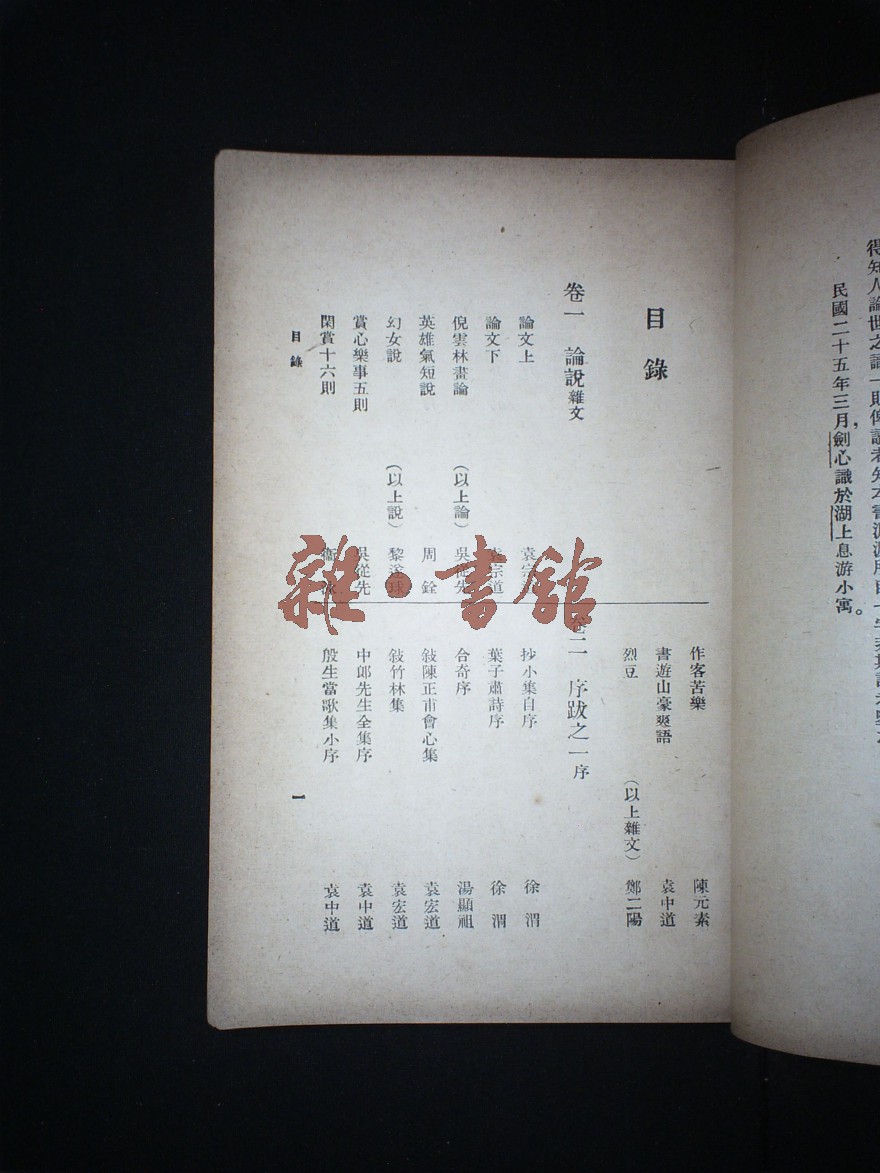 民國二十五年三月，劍心識於湖上息游小寓。
目錄
卷一 論說雜文
論文上 袁宗道
論文下 袁宗道
(以上論)
倪雲林畫論 吳從先
英雄氣短說 周銓
(以上說)
幻女說 黎遂球
賞心樂事五則 吳從先
閑賞十六則 衞泳
作客苦樂 陳元素
書遊山豪爽語 袁中道
烈豆 (以上雜文) 鄭二陽
卷二 序跋之一序
抄小集自序 徐渭
葉子肅詩序 徐渭
合奇序 湯顯祖
敍陳正甫會心集 袁宏道
敍竹林集 袁宏道
中郎先生全集序 袁中道
殷生當歌集小序 袁中道
目錄
一
雜·書館